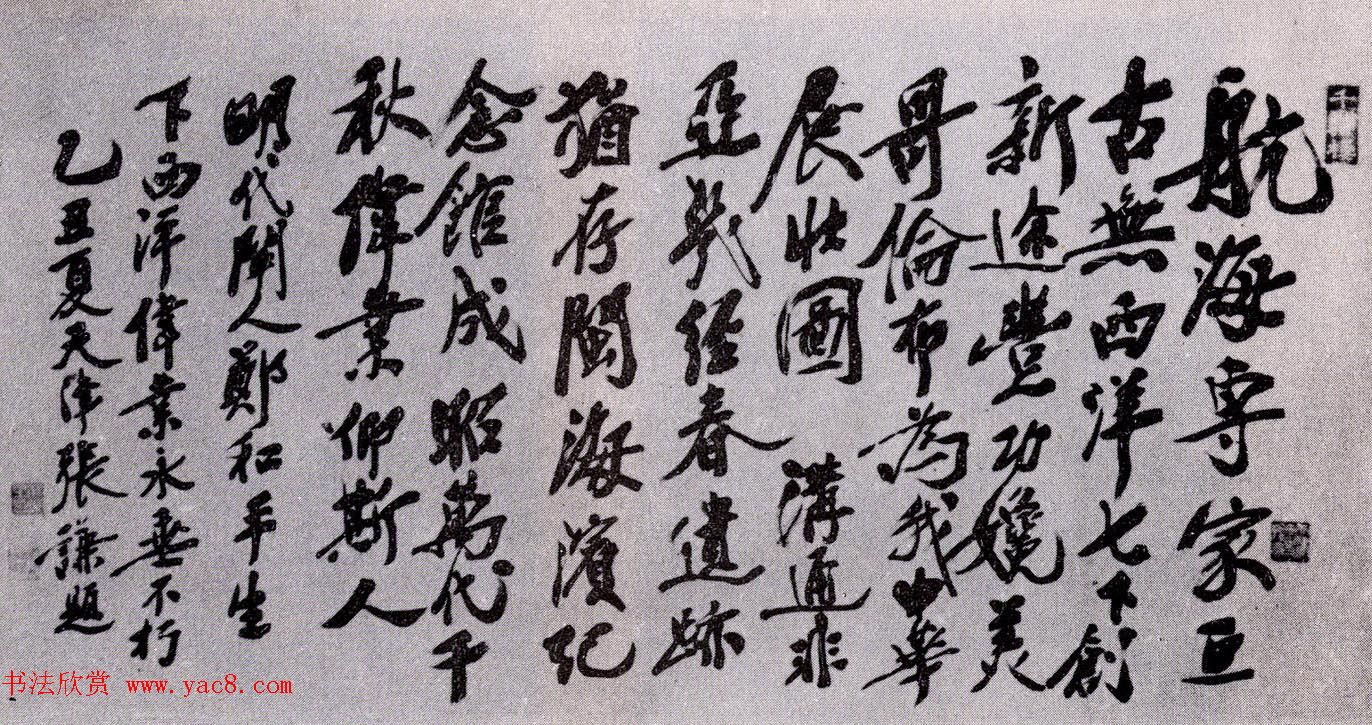 航海专家亘
古無西洋七下創
新途豐功媲美
哥倫布為我中華
展壯圖 溝通非
亞幾經春遺跡
猶存閩海濱紀
念館成昭萬代千
秋偉業仰斯人
明代閹人鄭和平生
下西洋偉業永垂不朽
乙丑夏天津張謙題
书法欣赏 www.yac8.com